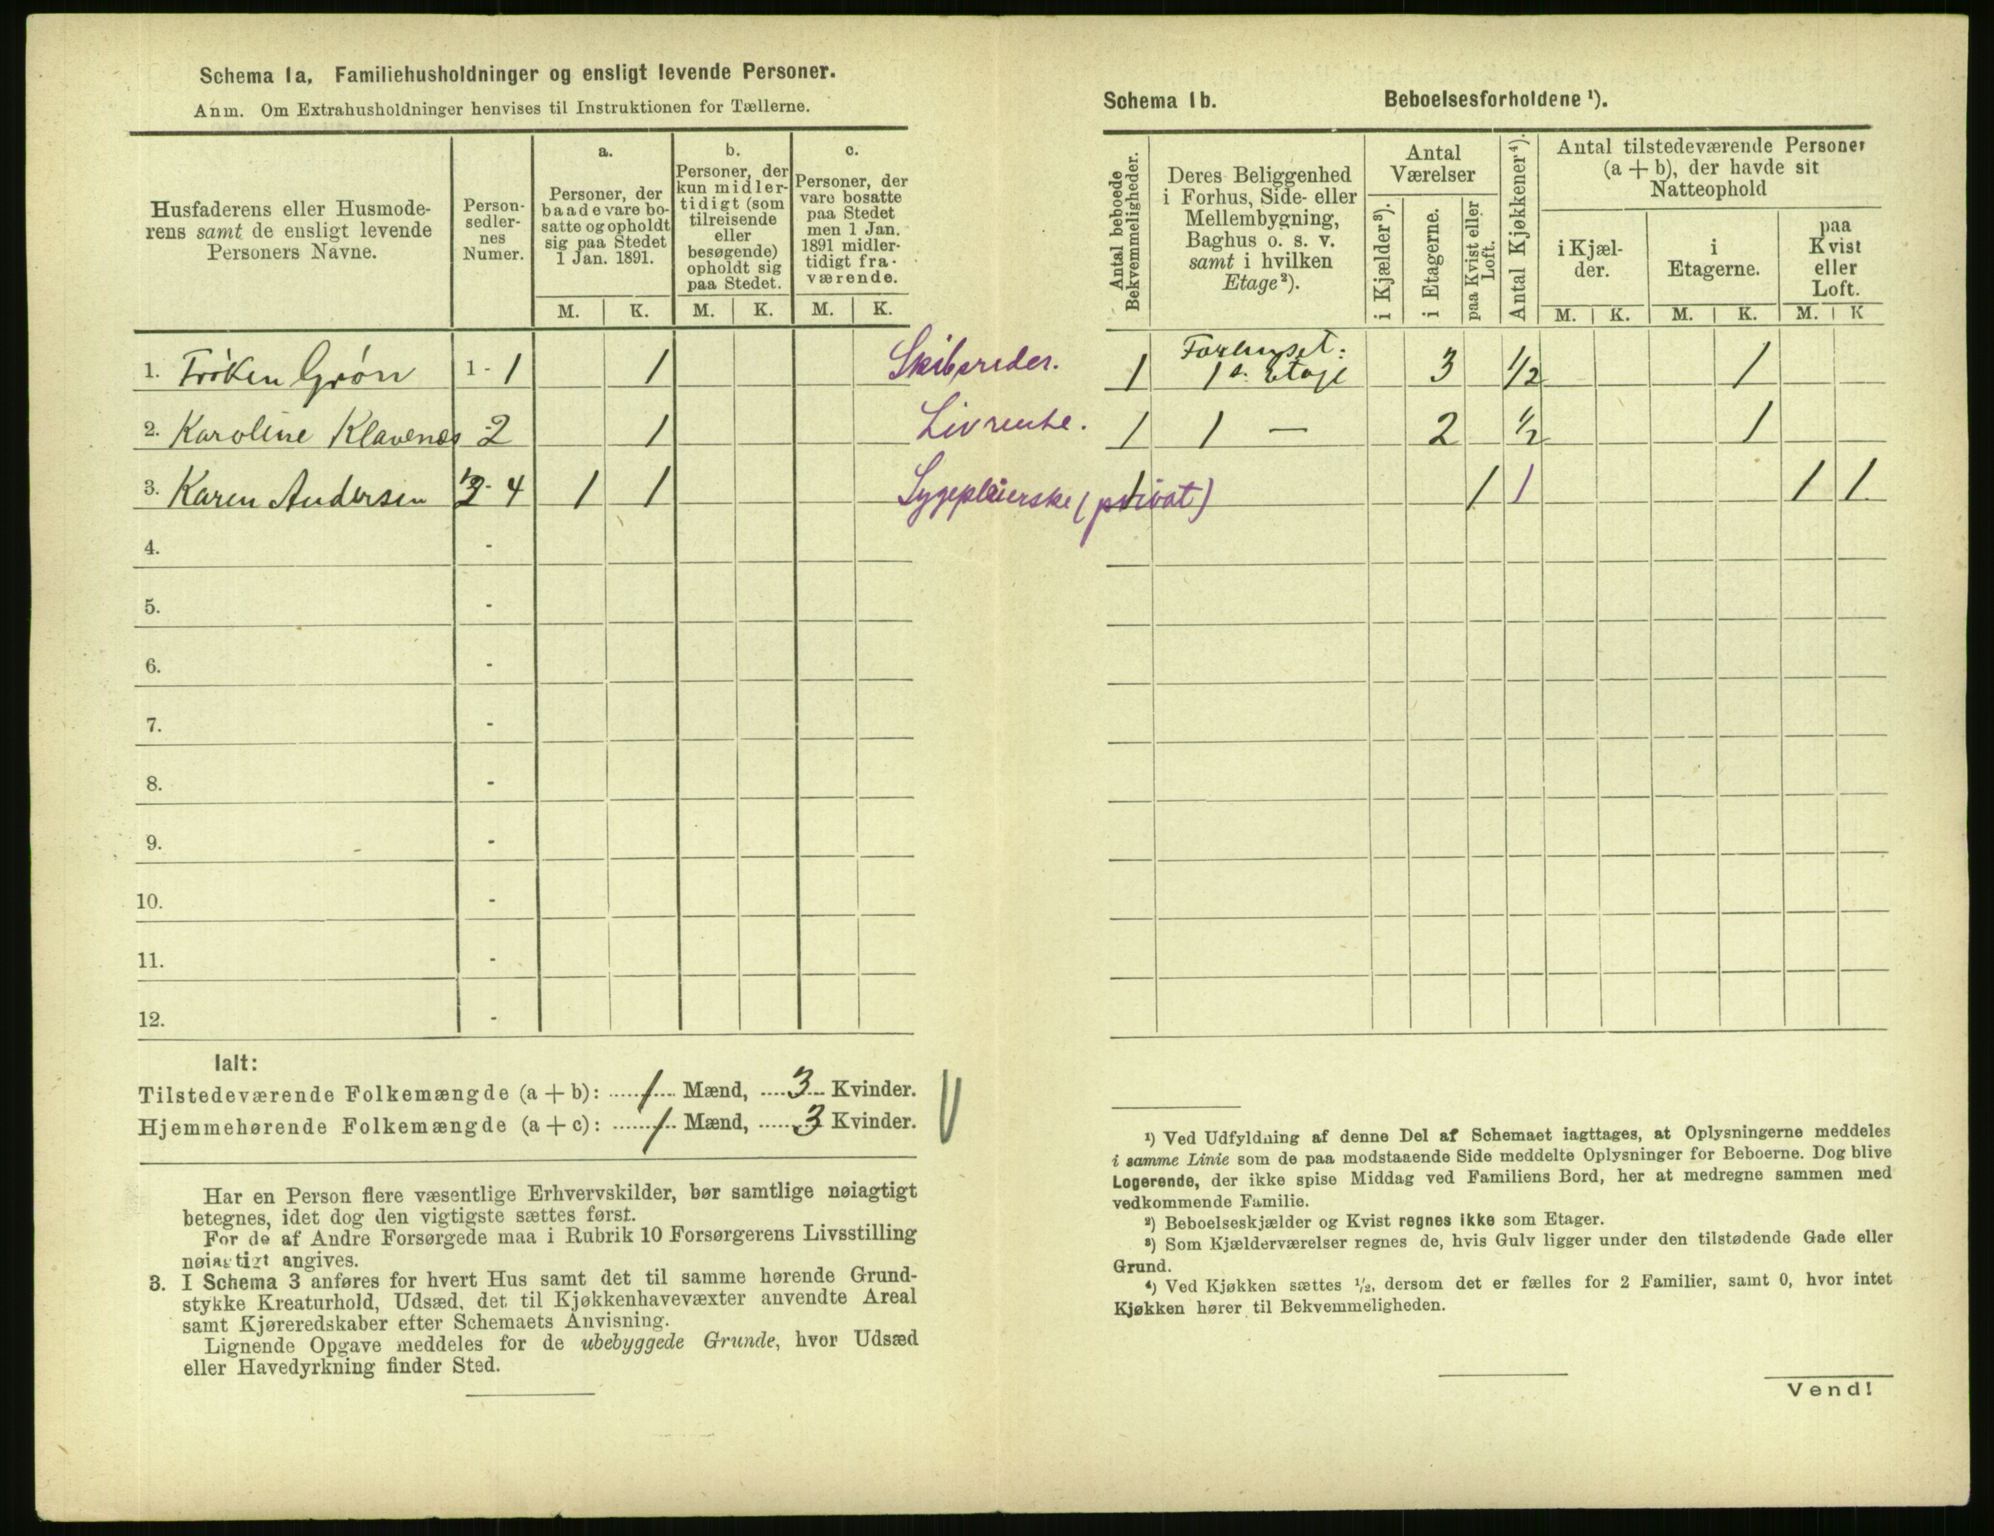 Schema 1a. Familiehusholdninger og ensligt levende Personer.
Anm. Om Extrahusholdninger henvises til Instruktionen for Tællerne.
Husfaderens eller Husmode-
rens samt de ensligt levende
Personers Navne.
Person-
sedler-
nes
Numer.
a.
Personer, der
baade vare bo-
satte og opholdt
sig paa Stedet
1 Jan. 1891.
b.
Personer, der
kun midler-
tidigt (som
tilreisende
eller
besøgende)
opholdt sig
paa Stedet.
c.
Personer, der
vare bosatte
paa Stedet
men 1 Jan.
1891 midler-
tidigt fra-
værende.
M. K. M. K. M. K.
1. Frøken Grøn 1 - 1 1 Skibsreder.
2. Karoline Klavenes -2 1 Livrente.
3. Karen Andersen 3 - 4 1 1 Sygepleierske (privat)
4. -
5. -
6. -
7. -
8. -
9. -
10. -
11. -
12. -
Ialt:
Tilstedeværende Folkemængde (a + b): 1 Mænd, 3 Kvinder.
Hjemmehørende Folkemængde (a + c): 1 Mænd, 3 Kvinder.
Har en Person flere væsentlige Erhvervskilder, bør samtlige nøiagtigt
betegnes, idet dog den vigtigste sættes først.
For de af Andre Forsørgede maa i Rubrik 10 Forsørgerens Livsstilling
nøiagtigt angives.
3. I Schema 3 anføres for hvert Hus samt det til samme hørende Grund-
stykke Kreaturhold, Udsæd, det til Kjøkkenhavevæxter anvendte Areal
samt Kjøreredskaber efter Schemaets Anvisning.
Lignende Opgave meddeles for de ubebyggede Grunde, hvor Udsæd
eller Havedyrkning finder Sted.
Schema 1b. Beboelsesforholdene ¹).
Antal beboede
Bekvemmeligheder.
Deres Beliggenhed
i Forhus, Side- eller
Mellembygning,
Baghus o. s. v.
samt i hvilken
Etage²).
Antal
Værelser
i Kjælder³).
i Etagerne.
paa Kvist eller
Loft.
Antal Kjøkkener⁴).
Antal tilstedeværende Personer
(a + b), der havde sit
Natteophold
i Kjæl-
der.
i
Etagerne.
paa
Kvist
eller
Loft.
M. K. M. K. M. K
1 Forhuset: 1 s. Etage 3 1/2 1
1 1 — 2 1/2 1
1 1 1 1 1
¹) Ved Udfyldning af denne Del af Schemaet iagttages, at Oplysningerne meddeles
i samme Linie som de paa modstaaende Side meddelte Oplysninger for Beboerne. Dog blive
Logerende, der ikke spise Middag ved Familiens Bord, her at medregne sammen med
vedkommende Familie.
²) Beboelseskjælder og Kvist regnes ikke som Etager.
³) Som Kjælderværelser regnes de, hvis Gulv ligger under den tilstødende Gade eller
Grund.
⁴) Ved Kjøkken sættes ½, dersom det er fælles for 2 Familier, samt 0, hvor intet
Kjøkken hører til Bekvemmeligheden.
Vend!